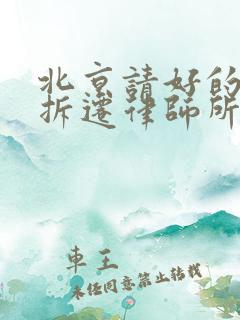 北京請好的
拆遷律師所
車王
未经同意禁止转载